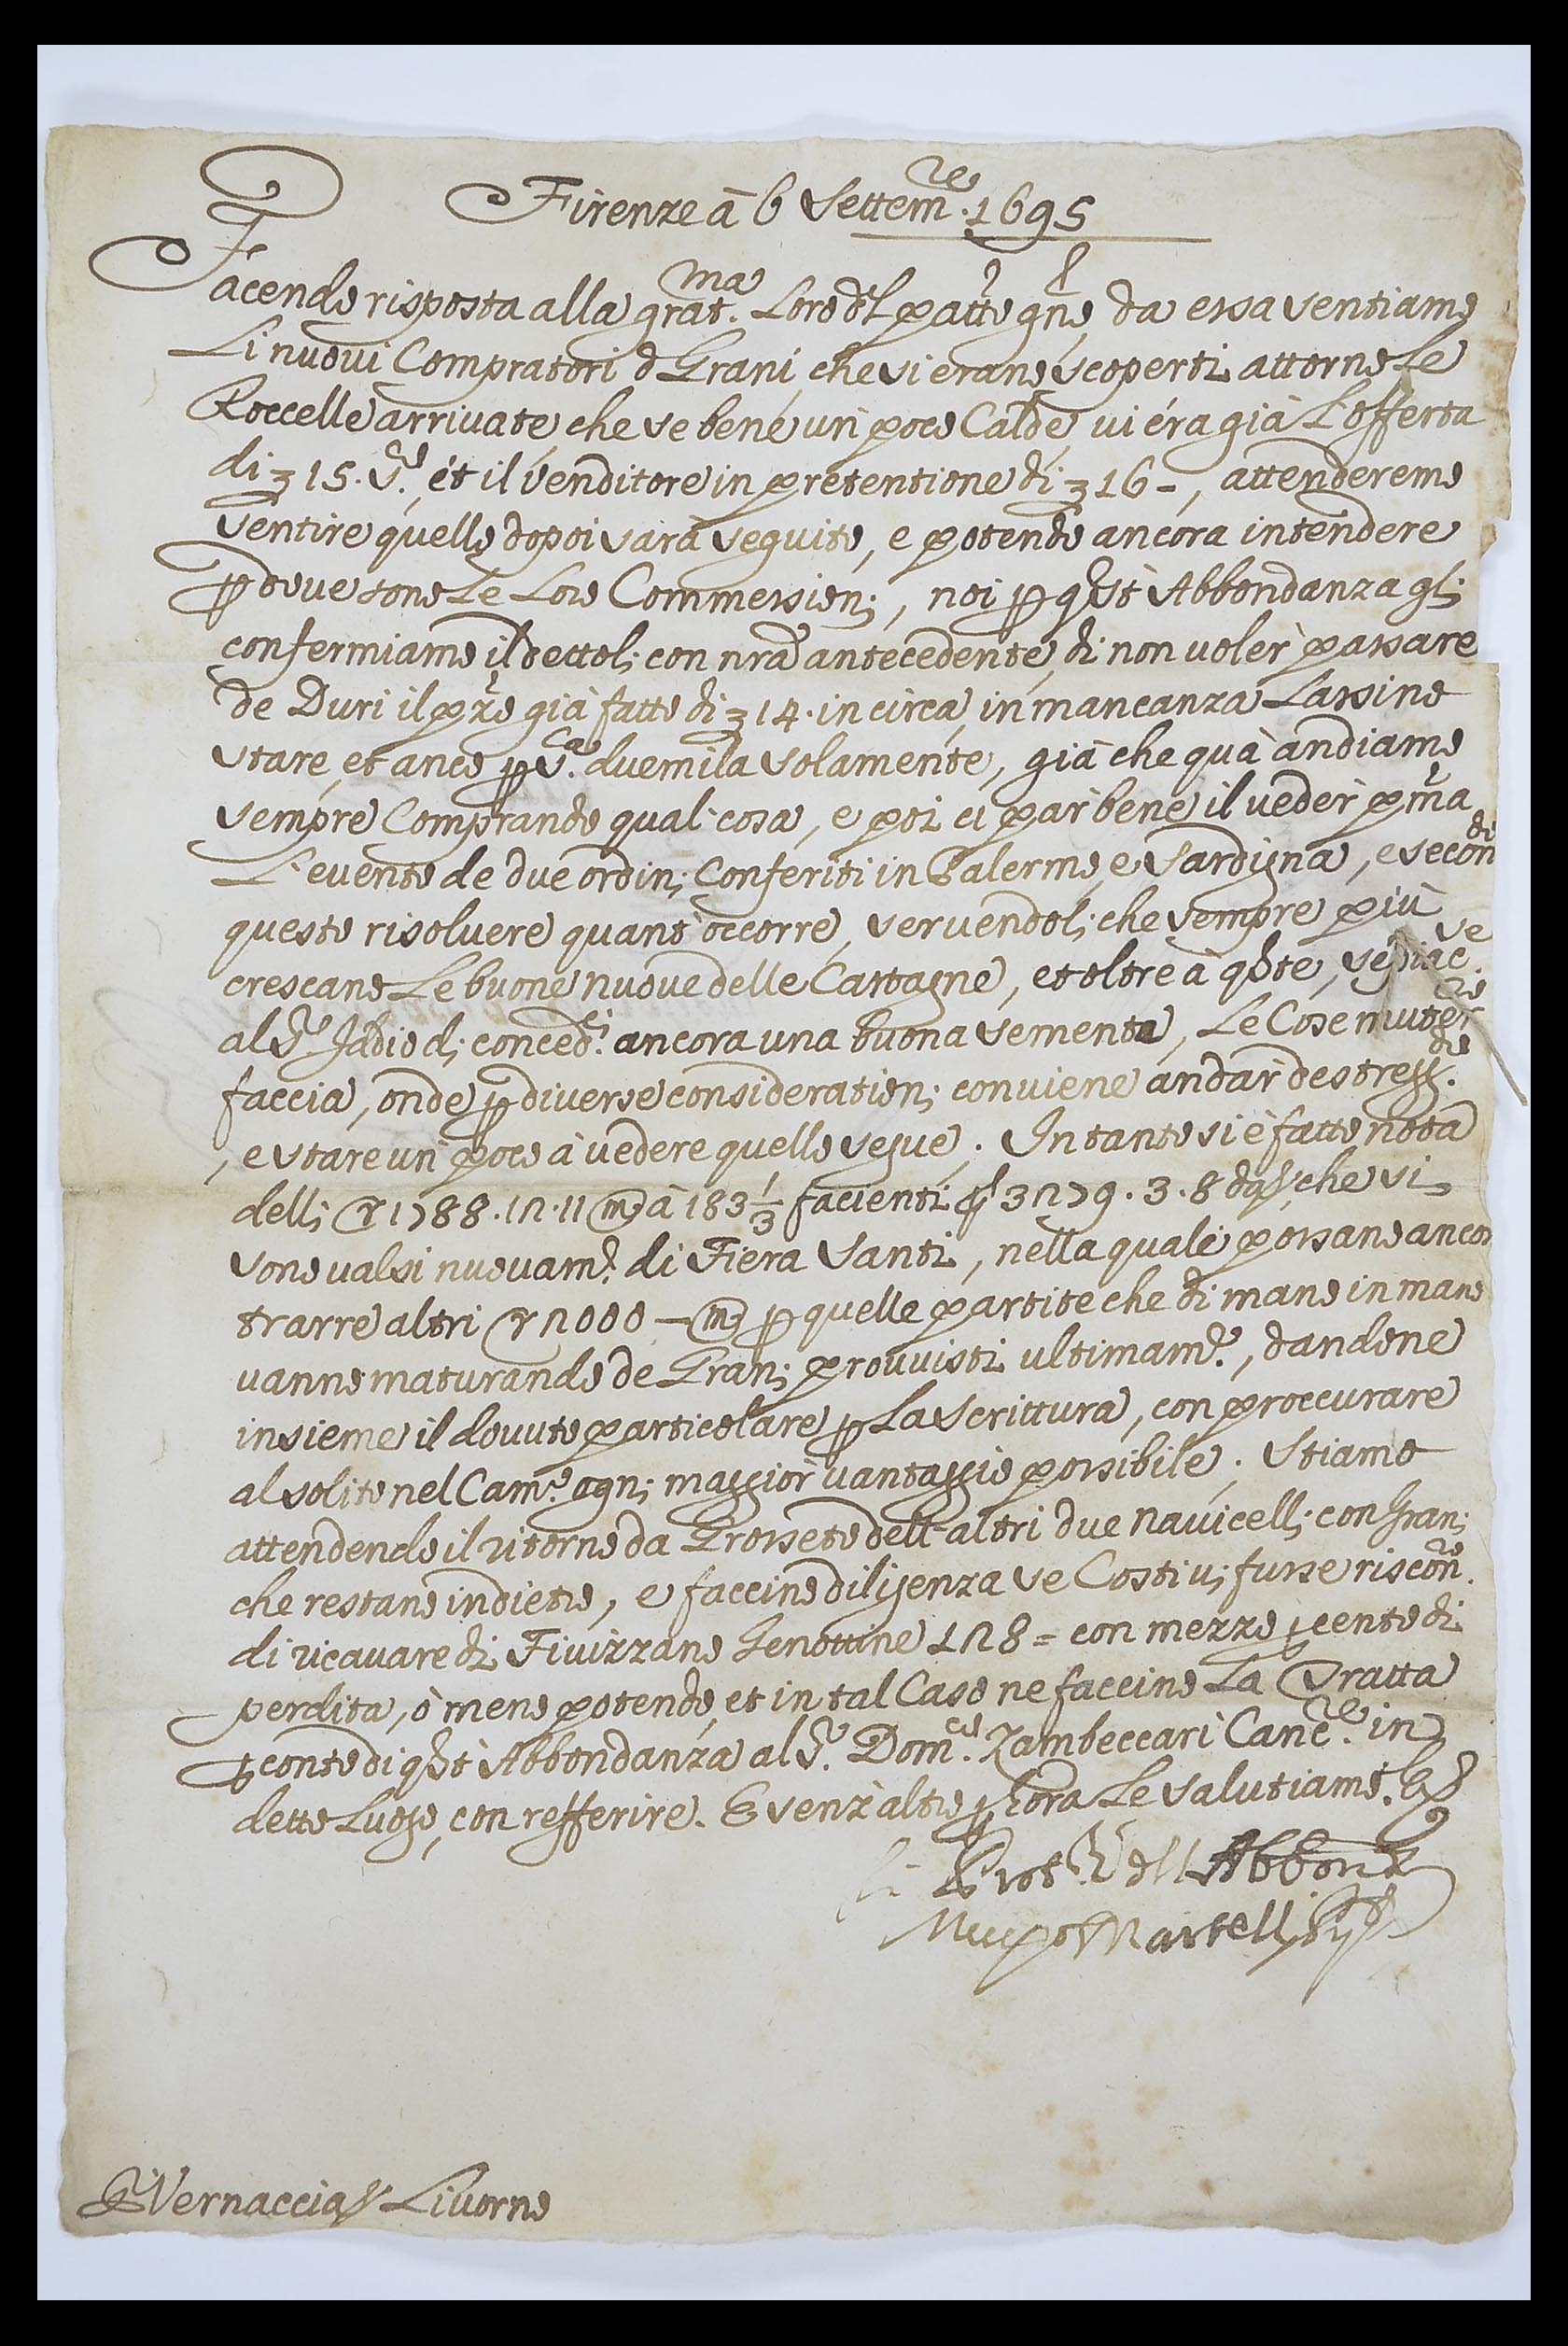 Firenze à 6 Settem.re 1695
Facendo risposta alla grat.ma Loro del patte gno, da essa sentiamo
Li nuovi Compratori d Grani, che si erano scoperti attorno Le
Roccelle arrivate, che se bene un poco Calde, vi éra già L'offerta
di 15. et il Venditore in pretentione di 16 -, attenderemo
sentire quello dopoi sarà seguito, e potendo ancora intendere
p dove sono Le Loro Commessioni, noi p qsta Abbondanza gli
confermiamo il dettoli con nra antecedente, di non voler passare
de Duri il pzo già fatto di 14. in circa, in mancanza Lassino
stare, et anco p S.ca duemila solamente, già che quà andiamo
sempre Comprando qual cosa, e poi ci par bene il veder pma
L'evento de due ordini Conferiti in Palermo, e Sardigna, e secondi
questo risolvere quant'occorre, servendoli che sempre più
crescano Le buone nuove delle Castagne, et oltre à qste, se piac.se
al Sr Iddio di conced.ci ancora una buona sementa, Le Cose muter.no
faccia, onde p diverse considerationi conviene andar destregg.do
, e stare un poco à vedere quello segue. In tanto si è fatto nota
delli 1788.12.11 à 183 1/3 facienti 3279.3.8 che si
sono valsi nuovam.e di Fiera Santi, nella quale possano ancor
trarre altri 2000 — p quelle partite che di mano in mano
vanno maturando de Grani provvisti ultimam.e, dandone
insieme il dovuto particolare p La Scrittura, con proccurare
al solito nel Cam.o ogni maggior vantaggio possibile. Stiamo
attendendo il ritorno da Grosseto dell'altri due navicelli con Grani
che restano indietro, e faccino diligenza se Costi vi fusse riscon.ro
di ricavare di Fivizzano Genottine 128 = con mezzo p cento di
perdita, ò meno potendo, et in tal Caso ne faccino La Tratta
p conto di qsta Abbondanza al Sr. Dom.co Zambeccari Canc.re in
detto Luogo, con refferire. E senz'altro p hora Le salutiamo.
Li Prov.ri dell Abbonz.
Martelli
Vernaccia Livorno